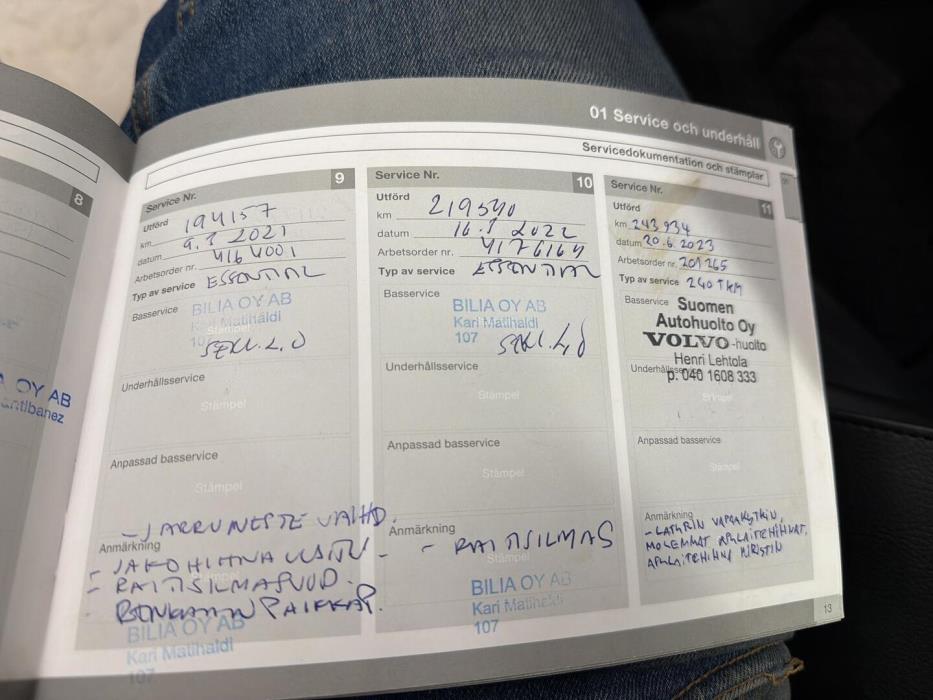 01 Service och underhåll
Servicedokumentation och stämplar
8
OY AB
Service Nr. 9
Utförd
km 194157
datum 9. 2021
Arbetsorder nr. 4164001
Typ av service ESSENTIAL
Basservice
BILIA OY AB
Kari Matihaldi
107
Stämpel
Underhållsservice
Stämpel
Anpassad basservice
Stämpel
- JARRUNESTE VAIHD.
Anmärkning
- JAKOHIHNA
- RAITISILMASUOD.
- PAIKKAP.
BILIA OY AB
Kari Matihaldi
107
Service Nr. 10
Utförd
km 219540
datum 16. 2022
Arbetsorder nr. 4176164
Typ av service ESSENTIAL
Basservice
BILIA OY AB
Kari Matihaldi
107
Underhållsservice
Stämpel
Anpassad basservice
Stämpel
Anmärkning
- RAITISILMAS
BILIA OY AB
Kari Matihaldi
107
Service Nr. 11
Utförd
km 243 934
datum 20.6.2023
Arbetsorder nr. 201265
Typ av service 240 TKM
Basservice
Suomen
Autohuolto Oy
VOLVO-huolto
Henri Lehtola
Underhållsservice
p. 040 1608 333
Stämpel
Anpassad basservice
Stämpel
Anmärkning
- LATURIN VAPAAKYTKIN,
MOLEMMAT APULAITEHIHNAT,
APULAITEHIHNA KIRISTIN
13